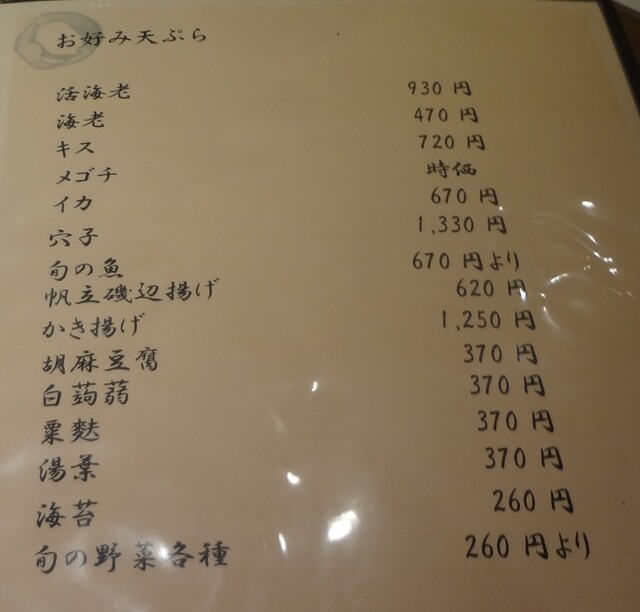 お好み天ぷら
活海老 930 円
海老 470 円
キス 720 円
メゴチ 時価
イカ 670 円
穴子 1,330 円
旬の魚 670 円より
帆立磯辺揚げ 620 円
かき揚げ 1,250 円
胡麻豆腐 370 円
白蒟蒻 370 円
粟麩 370 円
湯葉 370 円
海苔 260 円
旬の野菜各種 260 円より